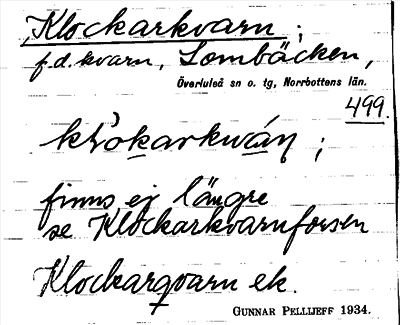 Klockarkvarn;
f.d. kvarn, Lombäcken,
Överluleå sn o. tg, Norrbottens län.
499.
finns ej längre
se Klockarkvarnforsen
Klockarqvarn ek.
GUNNAR PELLIJEFF 1934.